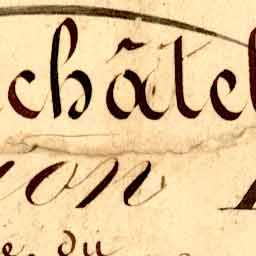 châtel
on
e. du